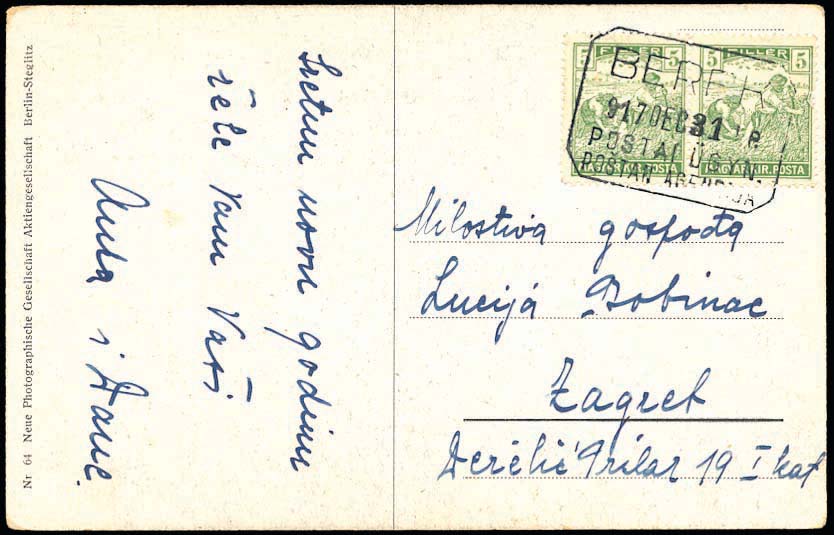 Nr 64 Neue Photographische Gesellschaft Aktiengesellschaft Berlin-Steglitz
Sretnu novu godinu
žele Vam Vaši
Anka i
5 FILLER 5
5 FILLER 5
MAGYAR KIR. POSTA
MAGYAR KIR. POSTA
917 DEC 31
POSTAI ÜGYN.
POŠTAN.
Milostiva gospođa
Lucija Bobinac
Zagreb
Prilaz 19 I kat